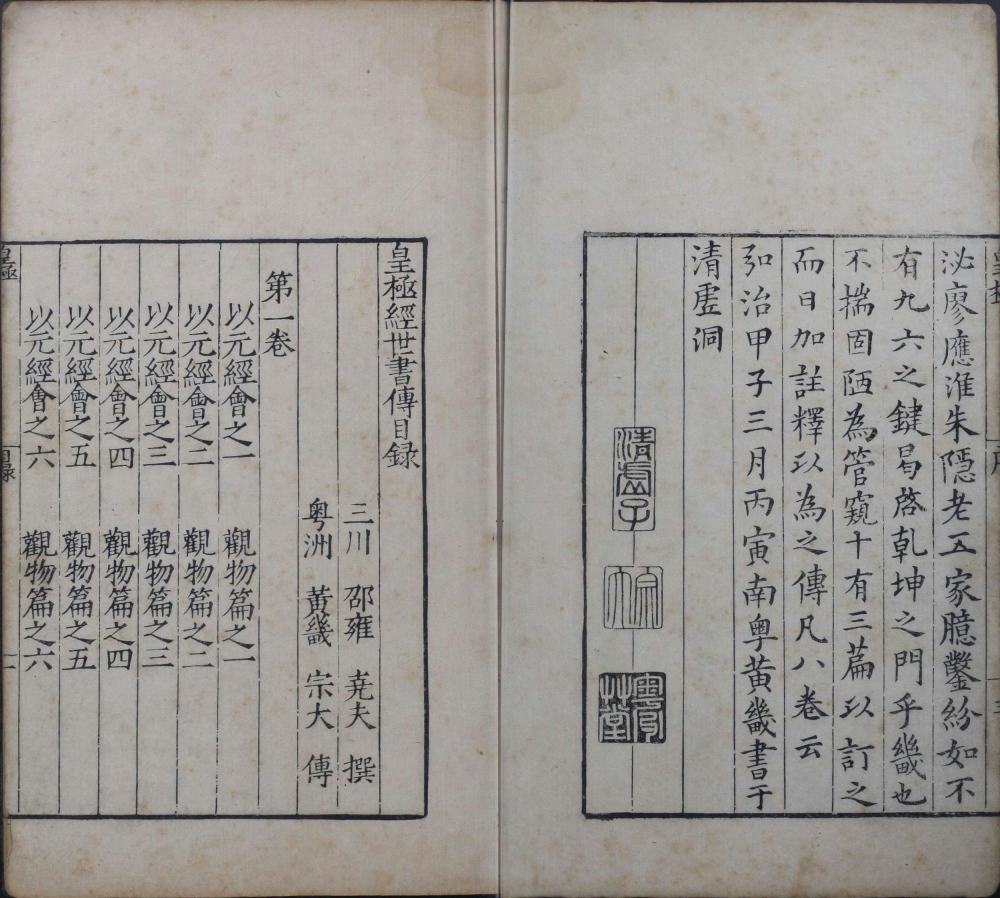 泌廖應淮朱隠老五家臆鑿紛如不
有九六之鍵曷啓乹坤之門乎畿也
不揣固陋為管窺十有三篇以訂之
而日加註釋以為之傳凡八卷云
弘治甲子三月丙寅南粤黄畿書于
清虗洞
清虗子
宗大
粤洲草堂
皇極經世書傳目録
三川 邵雍 堯夫 撰
粤洲 黄畿 宗大 傳
第一卷
以元經會之一 觀物篇之一
以元經會之二 觀物篇之二
以元經會之三 觀物篇之三
以元經會之四 觀物篇之四
以元經會之五 觀物篇之五
以元經會之六 觀物篇之六
皇極 目録 一